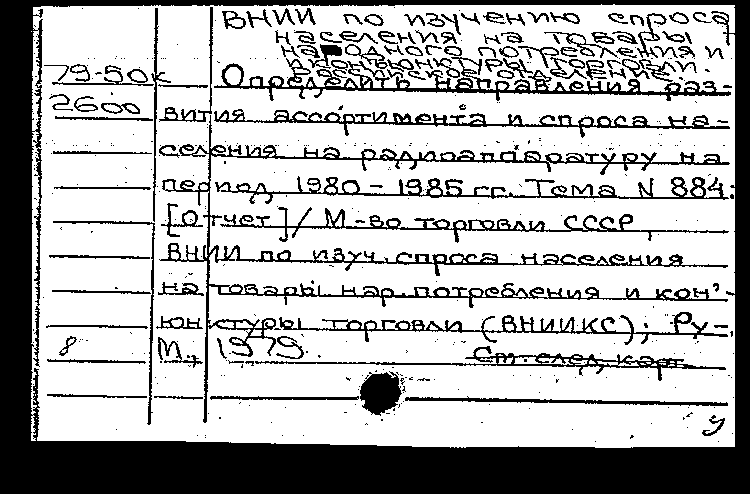 ВНИИ по изучению спроса
населения на товары
народного потребления и
конъюнктуры торговли.
79-50к Определить направления раз-
2600 вития ассортимента и спроса на-
селения на радиоаппаратуру на
период 1980 - 1985 гг. Тема N 884:
[Отчет] / М-во торговли СССР,
ВНИИ по изуч. спроса населения
на товары нар. потребления и конъ-
юнктуры торговли (ВНИИКС); Ру-
8 М., 1979. См. след. карт.
У